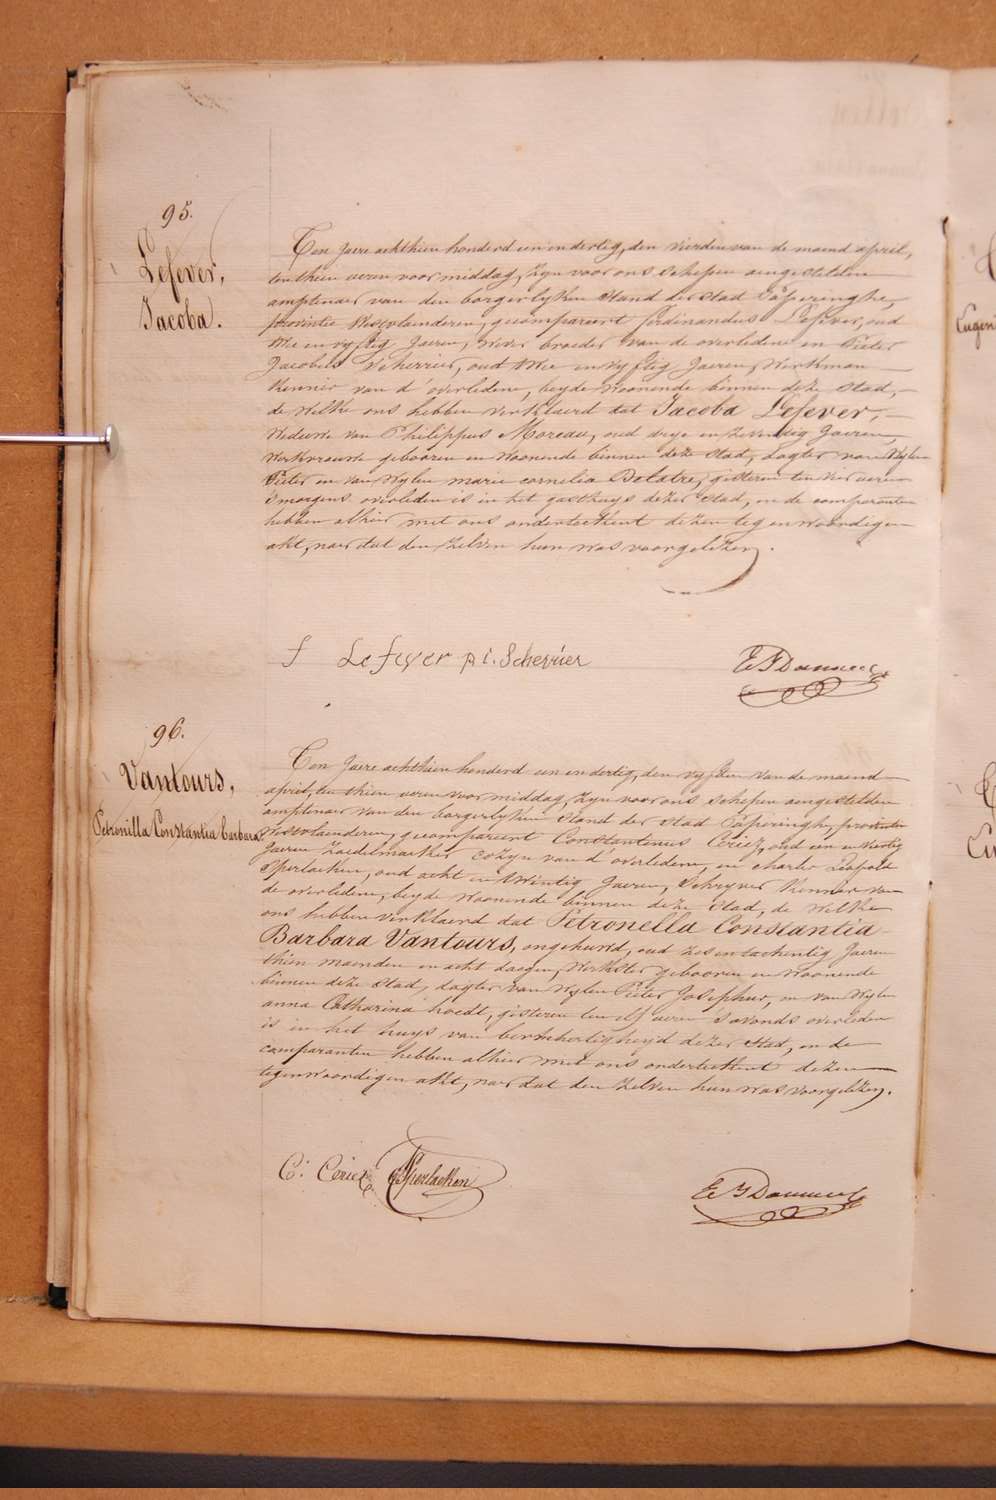 95.
Lefever,
Jacoba.
Ten Jaere achthien honderd een en dertig, den vierden van de maend april,
ten thien ueren voor middag, Zyn voor ons schepen aengestelden
amptenaer van den borgerlyken stand der stad Poperinghe,
provintie Westvlaenderen, gecompareert ferdinandus Lefever, oud
twee en vyftig Jaeren, wever broeder van de overledene en Pieter
Jacobus Scherrier, oud twee en vyftig Jaeren, Werkman
Kenner van d'overledene, beyde Woonende binnen deze stad,
de Welke ons hebben verklaerd dat Jacoba Lefever,
Weduwe van Philippus Moreau, oud drye en zeventig Jaeren,
Werkvrouw gebooren en Woonende binnen deze stad, dogter van Wylen
Pieter en van Wylen marie cornelia Delatre, gisteren ten vier ueren
s'morgens overleden is in het gasthuys dezer stad, en de comparanten
hebben alhier met ons onderteekent dezen tegenwoordigen
akt, naer dat den zelven hun was voorgelezen.
f Lefever p i. Scherrier
96.
Vantours,
Petronilla Constantia Barbara
Ten Jaere achthien honderd een en dertig, den vyfden van de maend
april, ten thien ueren voor middag, Zyn voor ons schepen aengestelden
amptenaer van den borgerlyken stand der stad Poperinghe, provintie
Westvlaenderen, gecompareert Constantinus Ceriez, oud een en veertig
Jaeren Zaedelmaeker cozyn van d'overledene, en charles Leopold
Sperlaeken, oud acht en twintig Jaeren, Schryver Kenner van
de overledene, beyde Woonende binnen deze stad, de Welke
ons hebben verklaerd dat Petronella Constantia
Barbara Vantours, ongehuwd, oud zes en tachentig Jaeren
thien maenden en acht daegen, Werkster gebooren en Woonende
binnen deze stad, dogter van Wylen Pieter Josephus, en van Wylen
anna Catharina hoedt, gisteren ten elf ueren s'avonds overleden
is in het huys van bermhertigheyd dezer stad, en de
comparanten hebben alhier met ons onderteekent dezen
tegenwoordigen akt, naer dat den zelven hun was voorgelezen.
C: Ceriez Sperlaeken